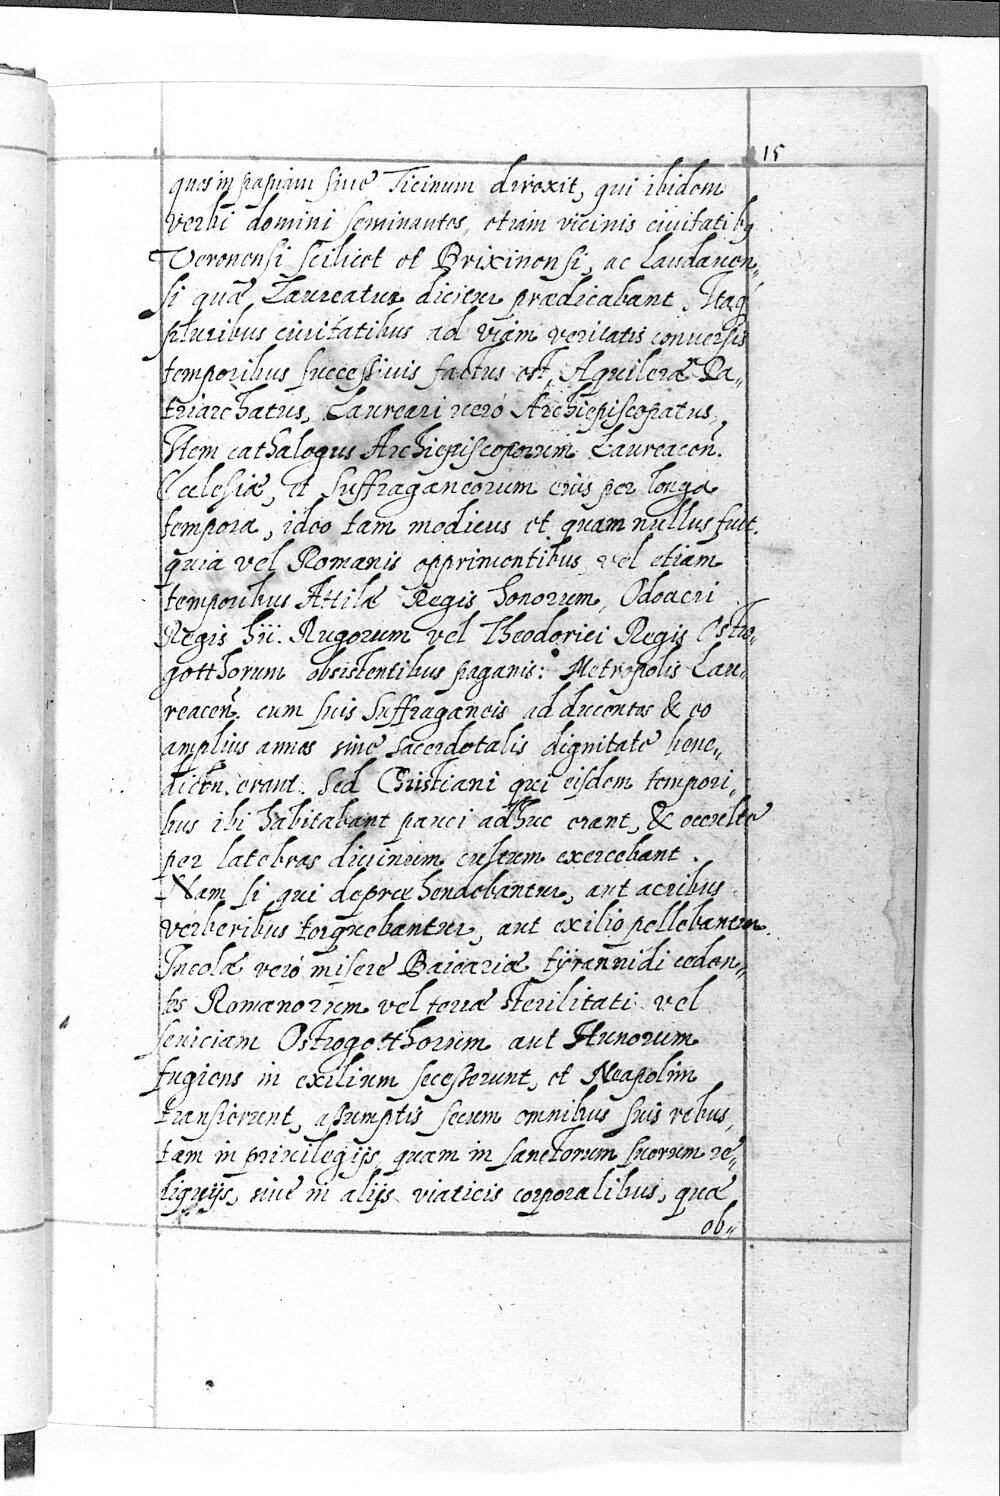 15
quos in papiam sive Ticinum direxit, qui ibidem
verbi domini seminantes, etiam vicinis civitatibq
Veronensi scilicet et Brixinensi, ac laudanen„
si quæ Laureatus dicitur prædicabant, Itaq
pluribus civitatibus ad viam veritatis conversis
temporibus successivis factus est, Aquileræ Pa„
triarchatus, Laureari veró Archiepiscopatus,
Item cathalogus Archiepiscoporum Laureacen̄.
Ecclesiæ, et suffraganeorum eius per longa
tempora, ideo tam modicus et quam nullus fuit.
quia vel Romanis opprimentibus, vel etiam
temporibus Attilæ Regis honorum, Odoacri
Regis hij. Rugorum vel Theodorici Regis Ostro„
gotthorum obsistentibus paganis: Metropolis Lau„
reacen̄. cum suis suffraganeis ad ducentos & eo
amplius annos sine sacerdotalis dignitate bene„
dictn. erant. Sed Christiani qui eisdem tempori„
bus ibi habitabant pauci adhuc erant, & occulte
per latebras divinum cultum exercebant.
Nam si qui deprehendebantur, aut acribus
verberibus torquebantur, aut exilio pellebantur.
Incolæ veró misere Baioariæ tÿrannidi ceden„
tes Romanorum vel terræ sterilitati vel
seviciam Ostrogotthorum aut Hunorum
fugiens in exilium secesserunt, et Neapolim
transierunt, assumptis secum omnibus suis rebus,
tam in privilegijs, quam in sanctorum suorum re„
liquijs, sive in alijs viaticis corporalibus, quæ
ob„